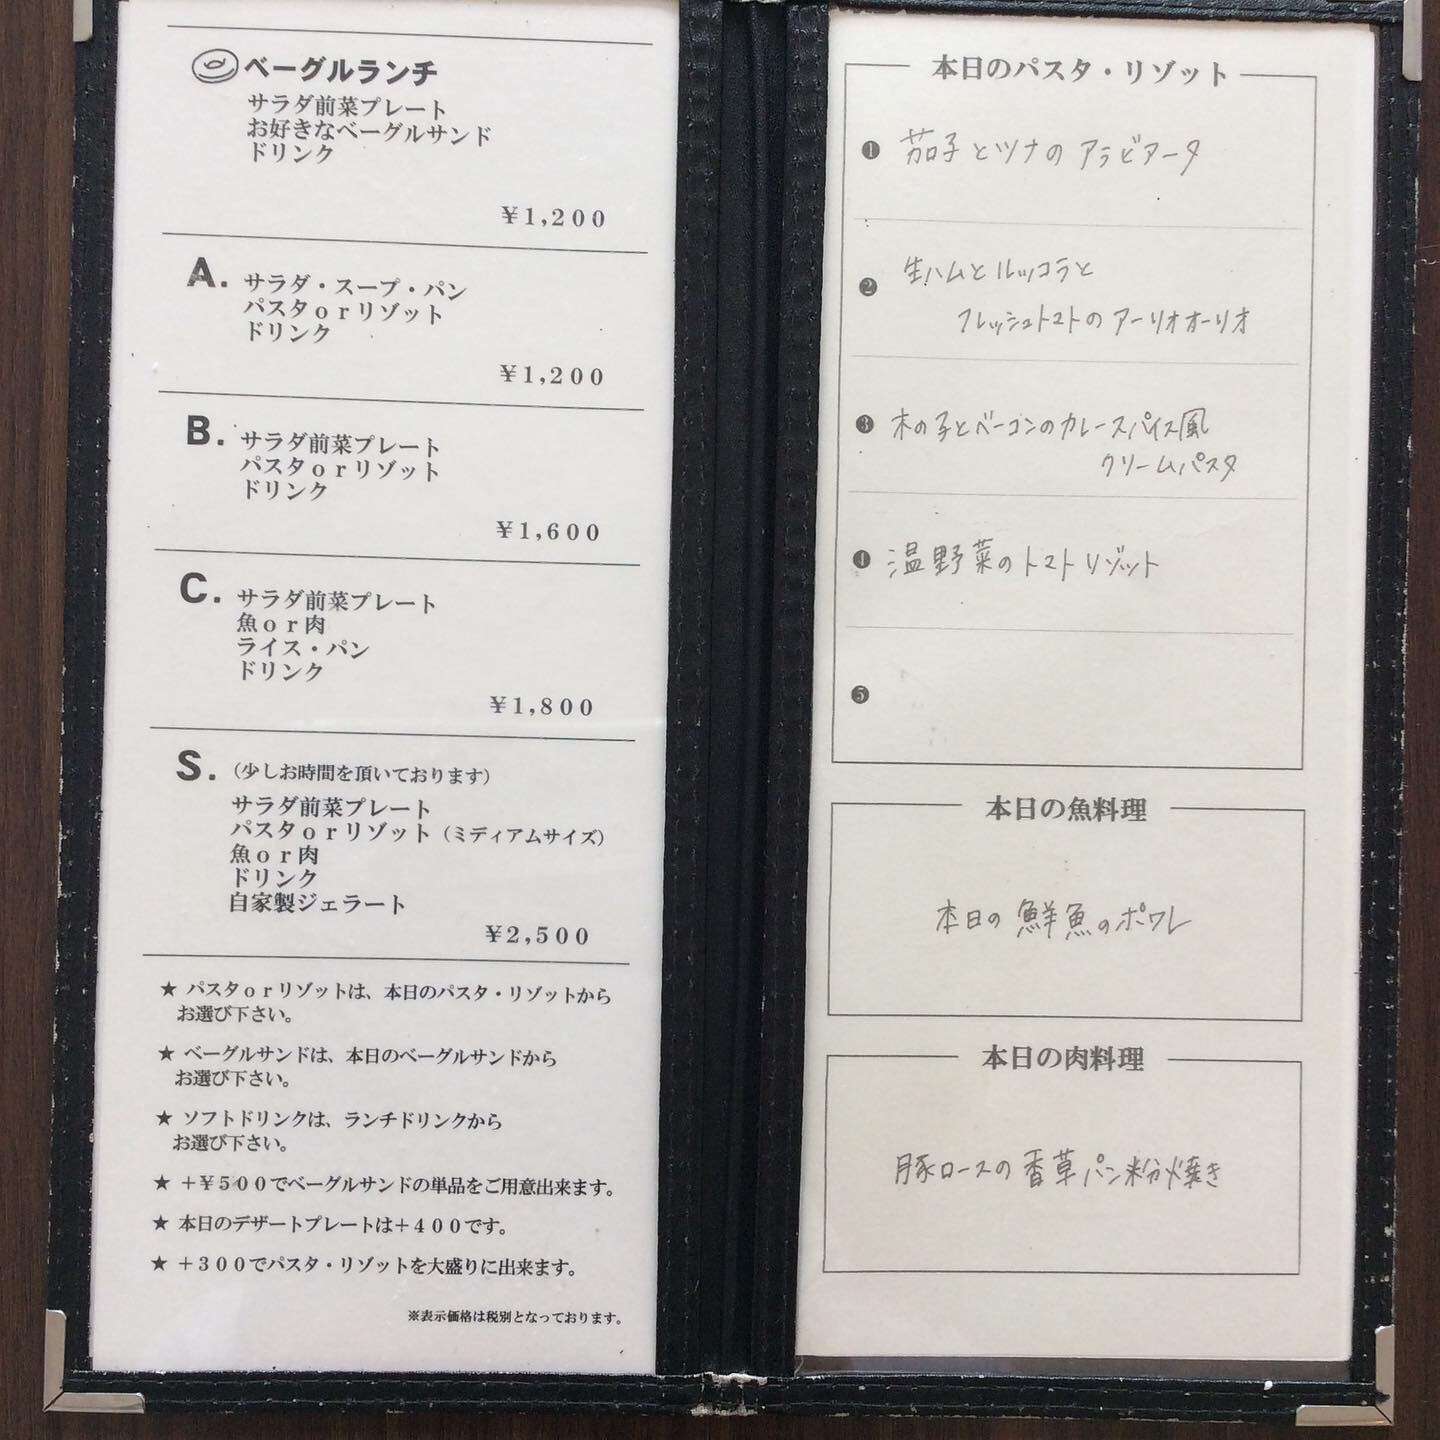 ベーグルランチ
サラダ前菜プレート
お好きなベーグルサンド
ドリンク
¥1,200
A. サラダ・スープ・パン
パスタorリゾット
ドリンク
¥1,200
B. サラダ前菜プレート
パスタorリゾット
ドリンク
¥1,600
C. サラダ前菜プレート
魚or肉
ライス・パン
ドリンク
¥1,800
S. (少しお時間を頂いております)
サラダ前菜プレート
パスタorリゾット(ミディアムサイズ)
魚or肉
ドリンク
自家製ジェラート
¥2,500
★ パスタorリゾットは、本日のパスタ・リゾットから
お選び下さい。
★ ベーグルサンドは、本日のベーグルサンドから
お選び下さい。
★ ソフトドリンクは、ランチドリンクから
お選び下さい。
★ +¥500でベーグルサンドの単品をご用意出来ます。
★ 本日のデザートプレートは+400です。
★ +300でパスタ・リゾットを大盛りに出来ます。
※表示価格は税別となっております。
本日のパスタ・リゾット
❶ 茄子とツナのアラビアータ
❷ 生ハムとルッコラと
フレッシュトマトのアーリオオーリオ
❸ 木の子とベーコンのカレースパイス風
クリームパスタ
❹ 温野菜のトマトリゾット
❺
本日の魚料理
本日の鮮魚のポワレ
本日の肉料理
豚ロースの香草パン粉焼き